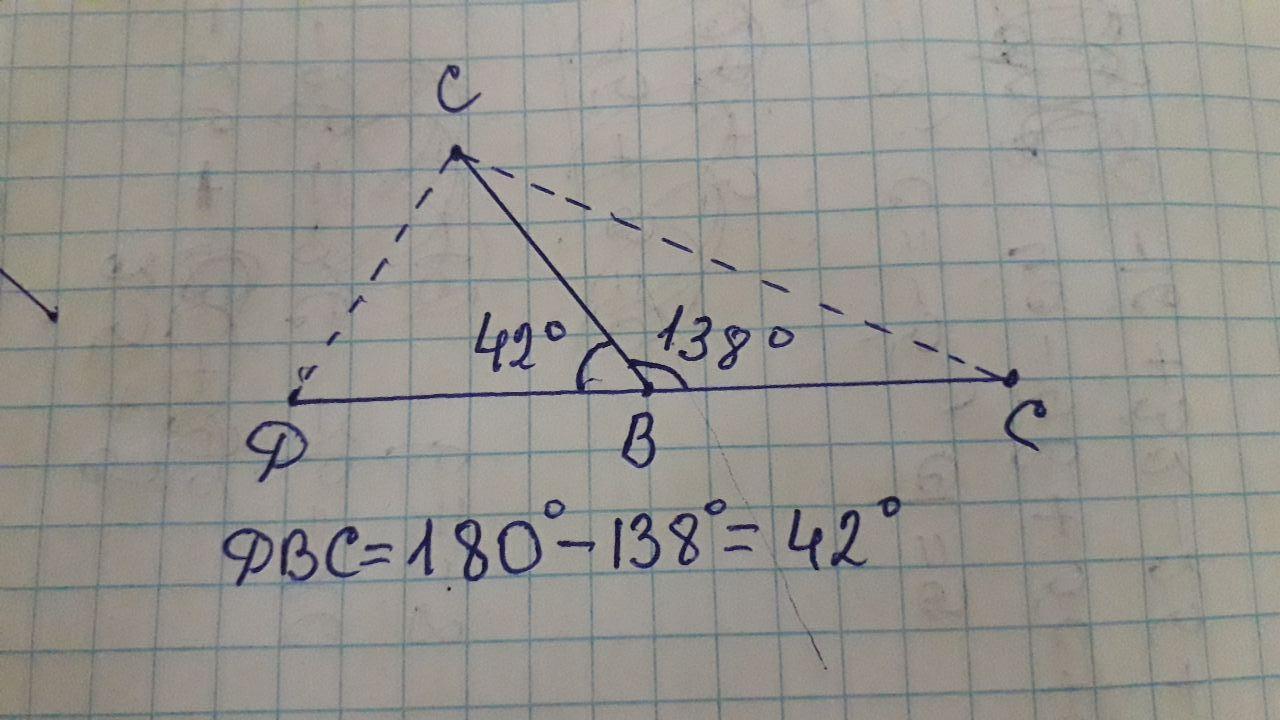 C
42° 138°
D B C
DBC=180°-138°=42°